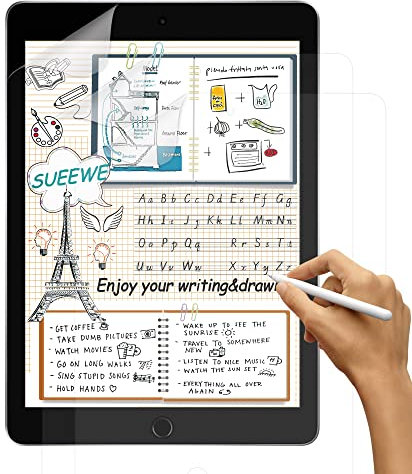 Hotel
pseudo frittata senza uova
H₂O
SUEEWE
Aa Bb Cc Dd Ee Ff Gg
Hh Ii Jj Kk Ll Mm Nn
Oo Pp Qq Rr Ss Tt
Uu Vv Ww Xx Yy Zz
Enjoy your writing&drawi
- GET COFFEE
- TAKE DUMB PICTURES
- WATCH MOVIES
- GO ON LONG WALKS
- SING STUPID SONGS
- HOLD HANDS ♡
• WAKE UP TO SEE THE
SUNRISE
• TRAVEL TO SOMEWHERE
NEW
• LISTEN TO NICE MUSIC
• WATCH THE SUN SET
• EVERYTHING ALL OVER
AGAIN